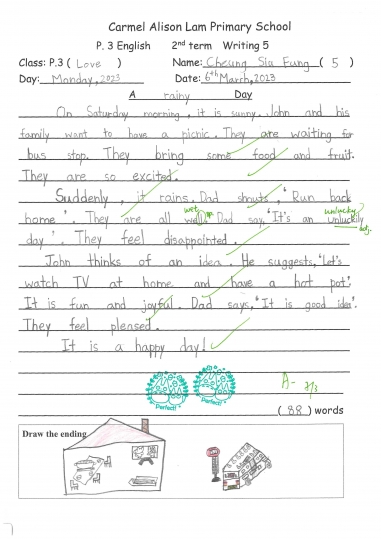 Carmel Alison Lam Primary School
P. 3 English 2nd term Writing 5
Class: P.3 ( Love ) Name: Cheung Siu Fung ( 5 )
Day: Monday, 2023 Date: 6th March, 2023
A rainy Day
On Saturday morning, it is sunny. John and his
family want to have a picnic. They are waiting for
bus stop. They bring some food and fruit.
They are so excited.
Suddenly, it rains. Dad shouts, 'Run back
wet unlucky
home'. They are all well. Dad say, 'It's an unluckily
adj.
day'. They feel disappointed.
John thinks of an idea. He suggests, 'Let's
watch TV at home and have a hot pot'.
It is fun and joyful. Dad says, 'It is good idea'.
They feel pleased.
It is a happy day!
Perfect! Perfect!
A- 7/3
( 88 ) words
Draw the ending